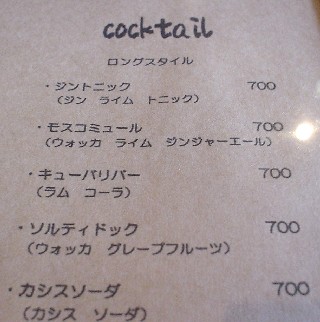 cocktail
ロングスタイル
・ジントニック 700
(ジン ライム トニック)
・モスコミュール 700
(ウォッカ ライム ジンジャーエール)
・キューバリバー 700
(ラム コーラ)
・ソルティドック 700
(ウォッカ グレープフルーツ)
・カシスソーダ 700
(カシス ソーダ)